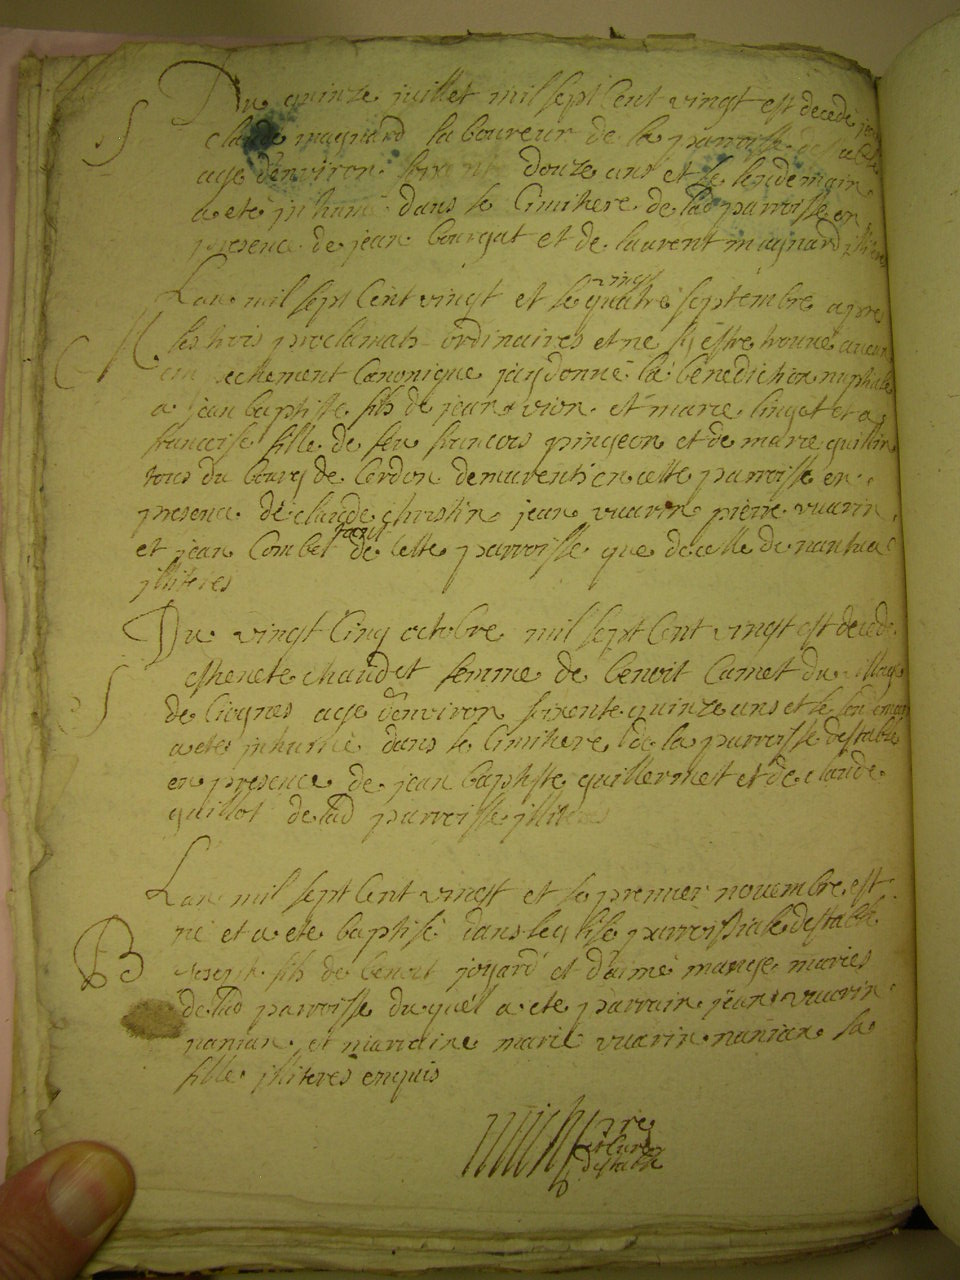 S
Du quinze juillet mil sept Cent vingt est decedé
claude magnard laboureur de la parroisse
age d'environ soixente douze ans et le lendemain
a eté jnhumé dans le Cimithere de lad parroisse en
presence de jean bourgat et de laurent magnard jlliteres
Lan mil sept Cent vingt et le vingt quatre septembre apres
M. les trois proclamats ordinaires et ne sy estre trouué aucun
empechement Canonique jay donné la benediction nuptiale
a jean baptiste fils de jean vion et marie linget et a
francoise fille de feu francois pingeon et de marie guillin
tous du bourg de Cerdon demeurents en cette parroisse en
presence de claude christin jean vuarin pierre vuarin
et jean Combet tant de Cette parroisse que de celle de nantua
jlliteres
Du vingt Cinq octobre mil sept Cent vingt est decede
S
estienete chaudet femme de benoit Carnet du village
de age d'environ soixente quinze ans et le lendemain
a eté jnhumé dans le Cimithere de la parroisse destable
en presence de jean baptiste guillermet et de claude
guillot de lad parroisse jlliteres
Lan mil sept Cent vingt et le premier nouembre est
B né et a eté baptisé dans leglise parroissiale destable
joseph fils de benoit joyard et d'aimé mariés
de lad parroisse duquel a eté parrain jean vuarin
nanian et marraine marie vuarin nanian sa
fille jlliteres enquis
curé
destable